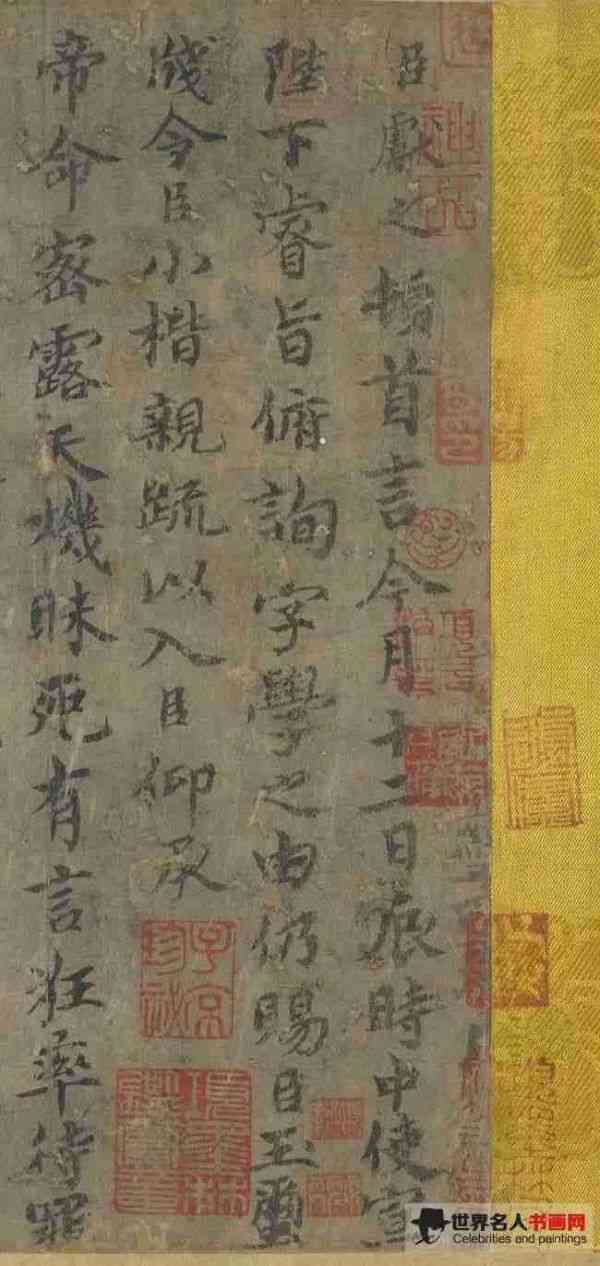 臣獻之稽首言今月十二日辰時中使宣
陛下睿旨俯詢字學之由仍賜臣玉璽
牋令臣小楷親疏以入臣仰承
帝命密露天機昧死有言狂率待罪
神品
子京珍祕
項墨林鑑賞章
世界名人书画网
Celebrities and paintings